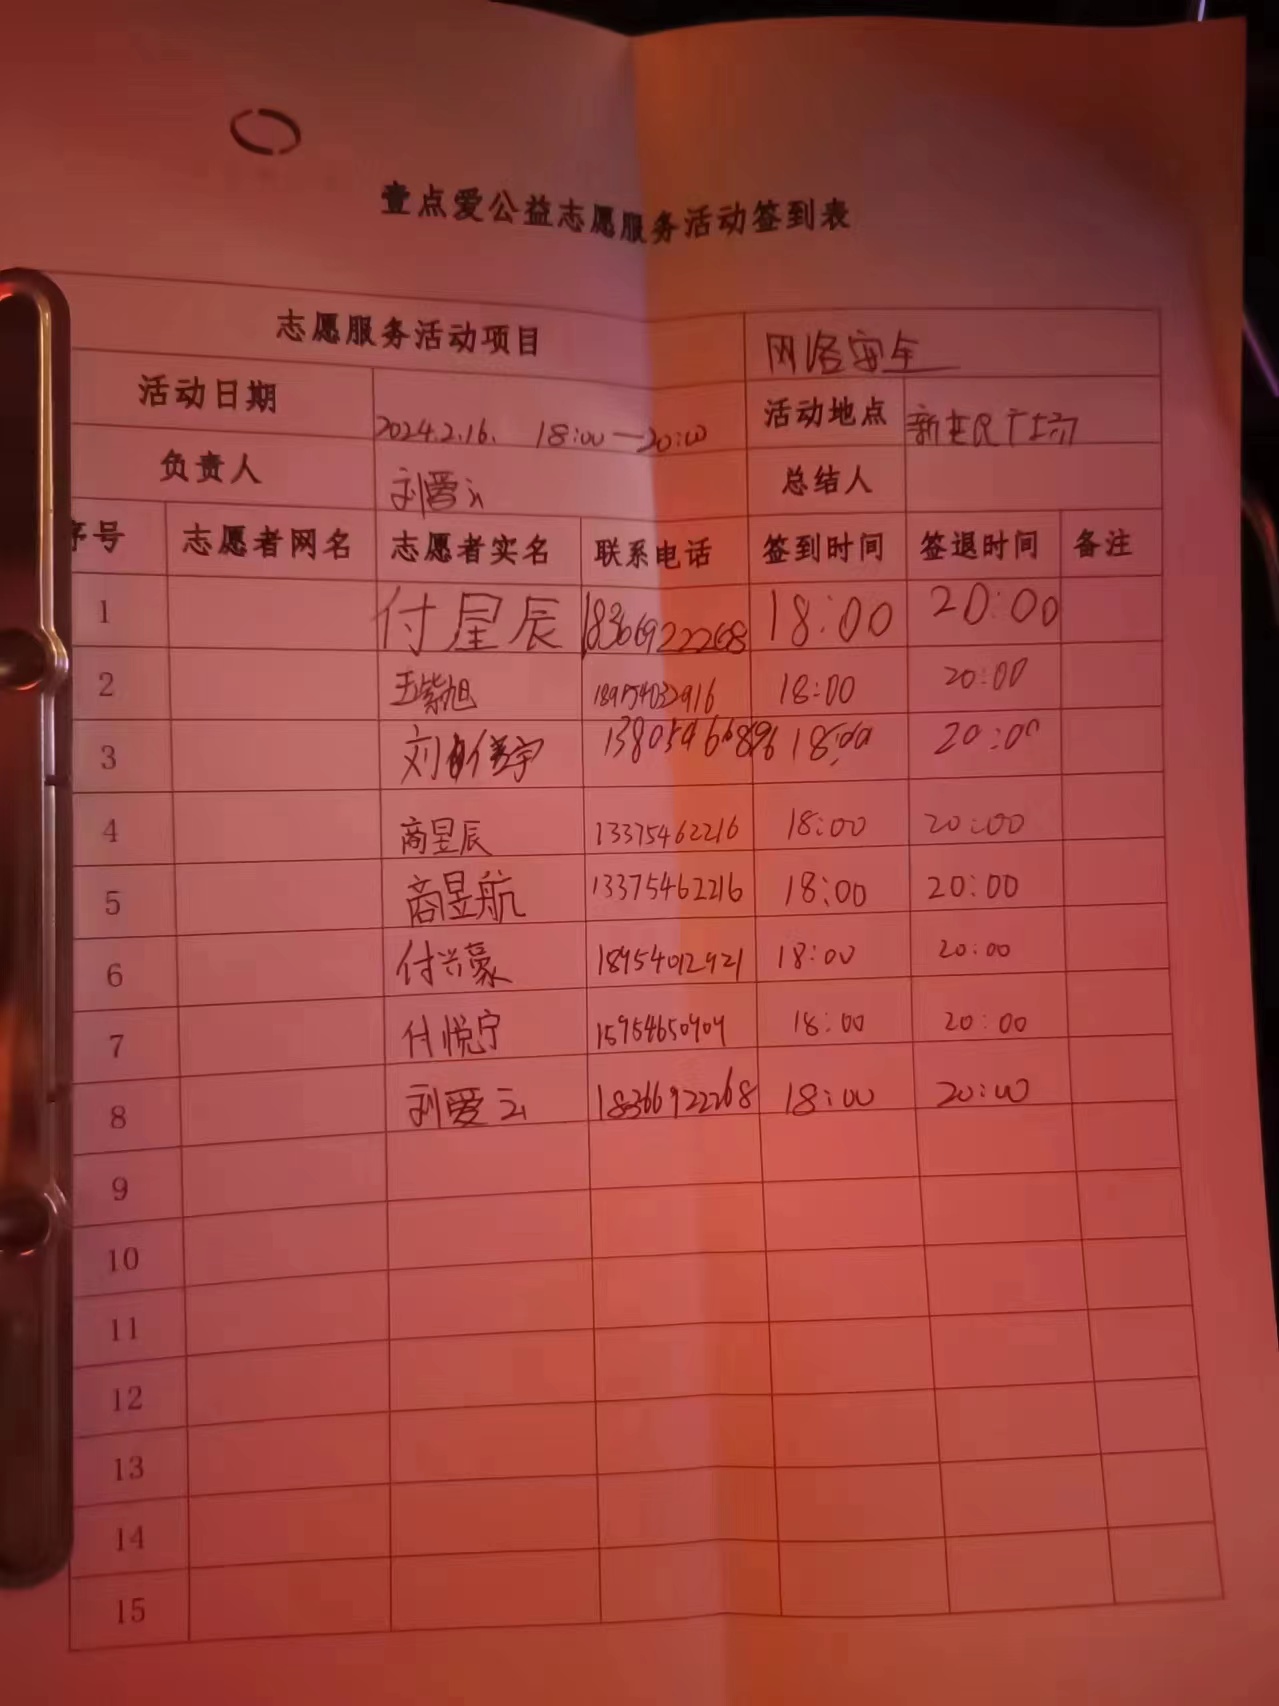 壹点爱公益志愿服务活动签到表
志愿服务活动项目 网络安全
活动日期 2024.2.16. 18:00—20:00 活动地点 新世民广场
负责人 刘爱云 总结人
序号 志愿者网名 志愿者实名 联系电话 签到时间 签退时间 备注
1 付星辰 18366922268 18:00 20:00
2 王紫旭 18954032916 18:00 20:00
3 刘 宇 18:00 20:00
4 商昱辰 13375462216 18:00 20:00
5 商昱航 13375462216 18:00 20:00
6 付兴豪 18954012921 18:00 20:00
7 付悦宁 15954650909 18:00 20:00
8 刘爱云 18366922268 18:00 20:00
9
10
11
12
13
14
15